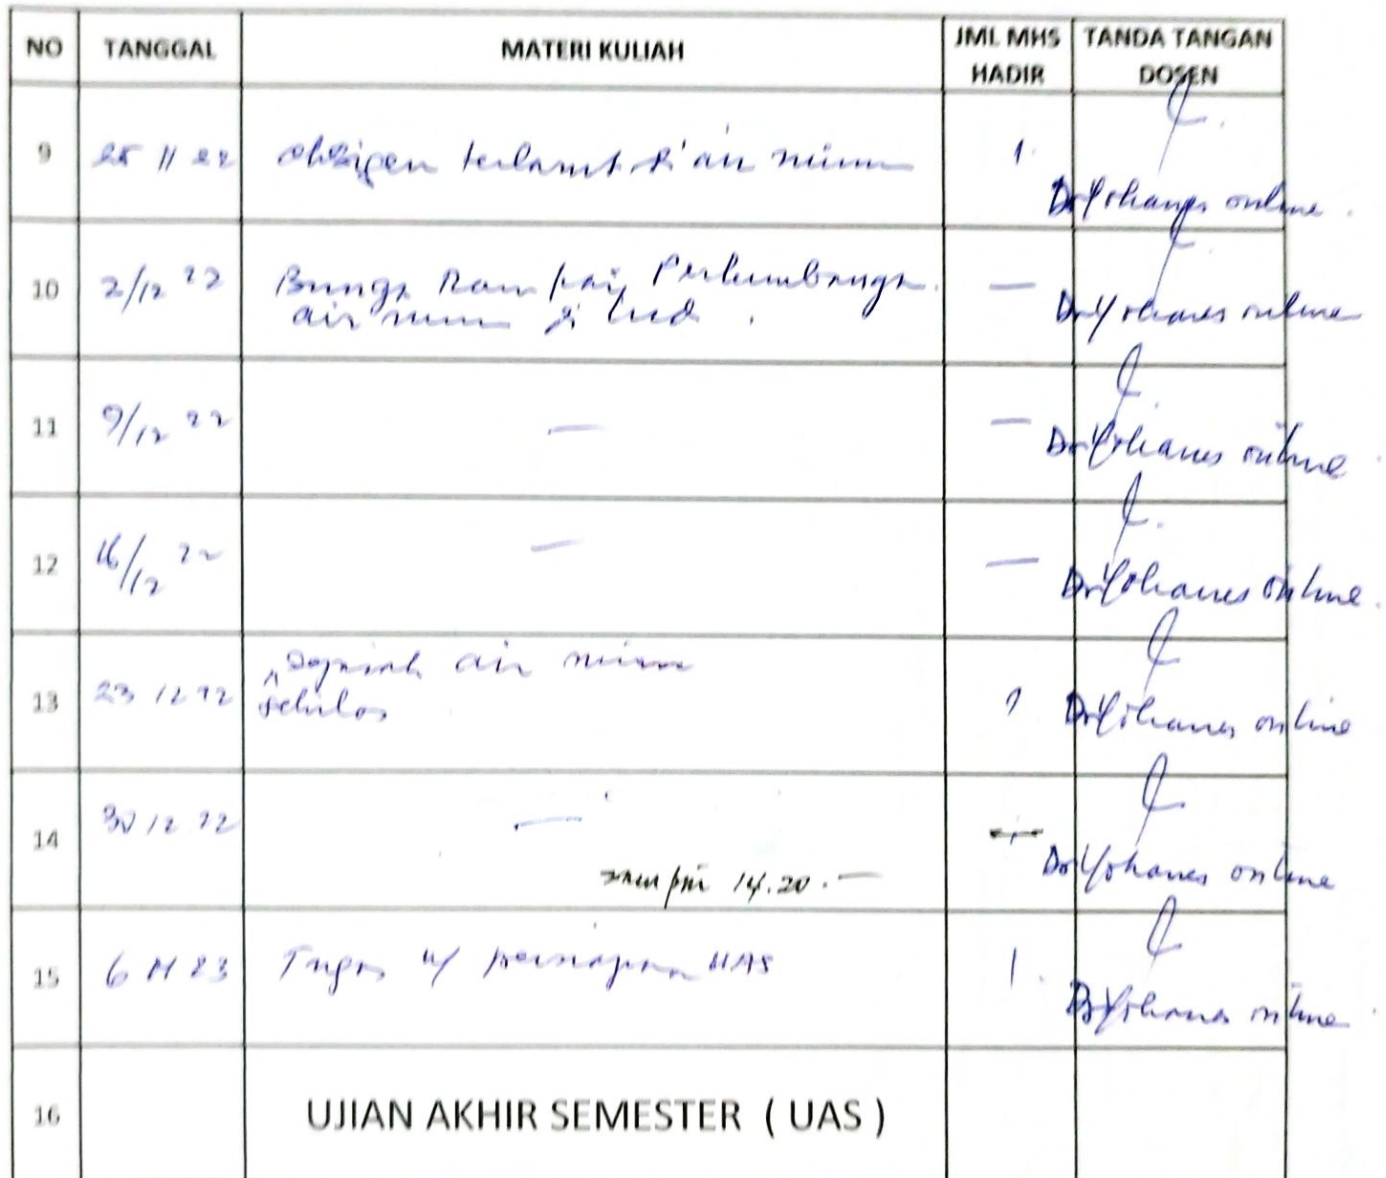 NO TANGGAL MATERI KULIAH JML MHS HADIR TANDA TANGAN DOSEN
9 25 11 22 oksigen terlarut di air minum 1
Dr Yohanes online.
10 2/12 22 Bunga Rampai Perkembangan
air minum di — Dr Yohanes online
11 9/12 22 — — Dr Yohanes online
12 16/12 22 — — Dr Yohanes online.
13 23 12 22 air minum
1 Dr Yohanes online
14 30 12 22 — Dr Yohanes online
14.20.—
15 6 23 Tugas u/ persiapan UAS 1. Dr Yohanes online
16 UJIAN AKHIR SEMESTER ( UAS )